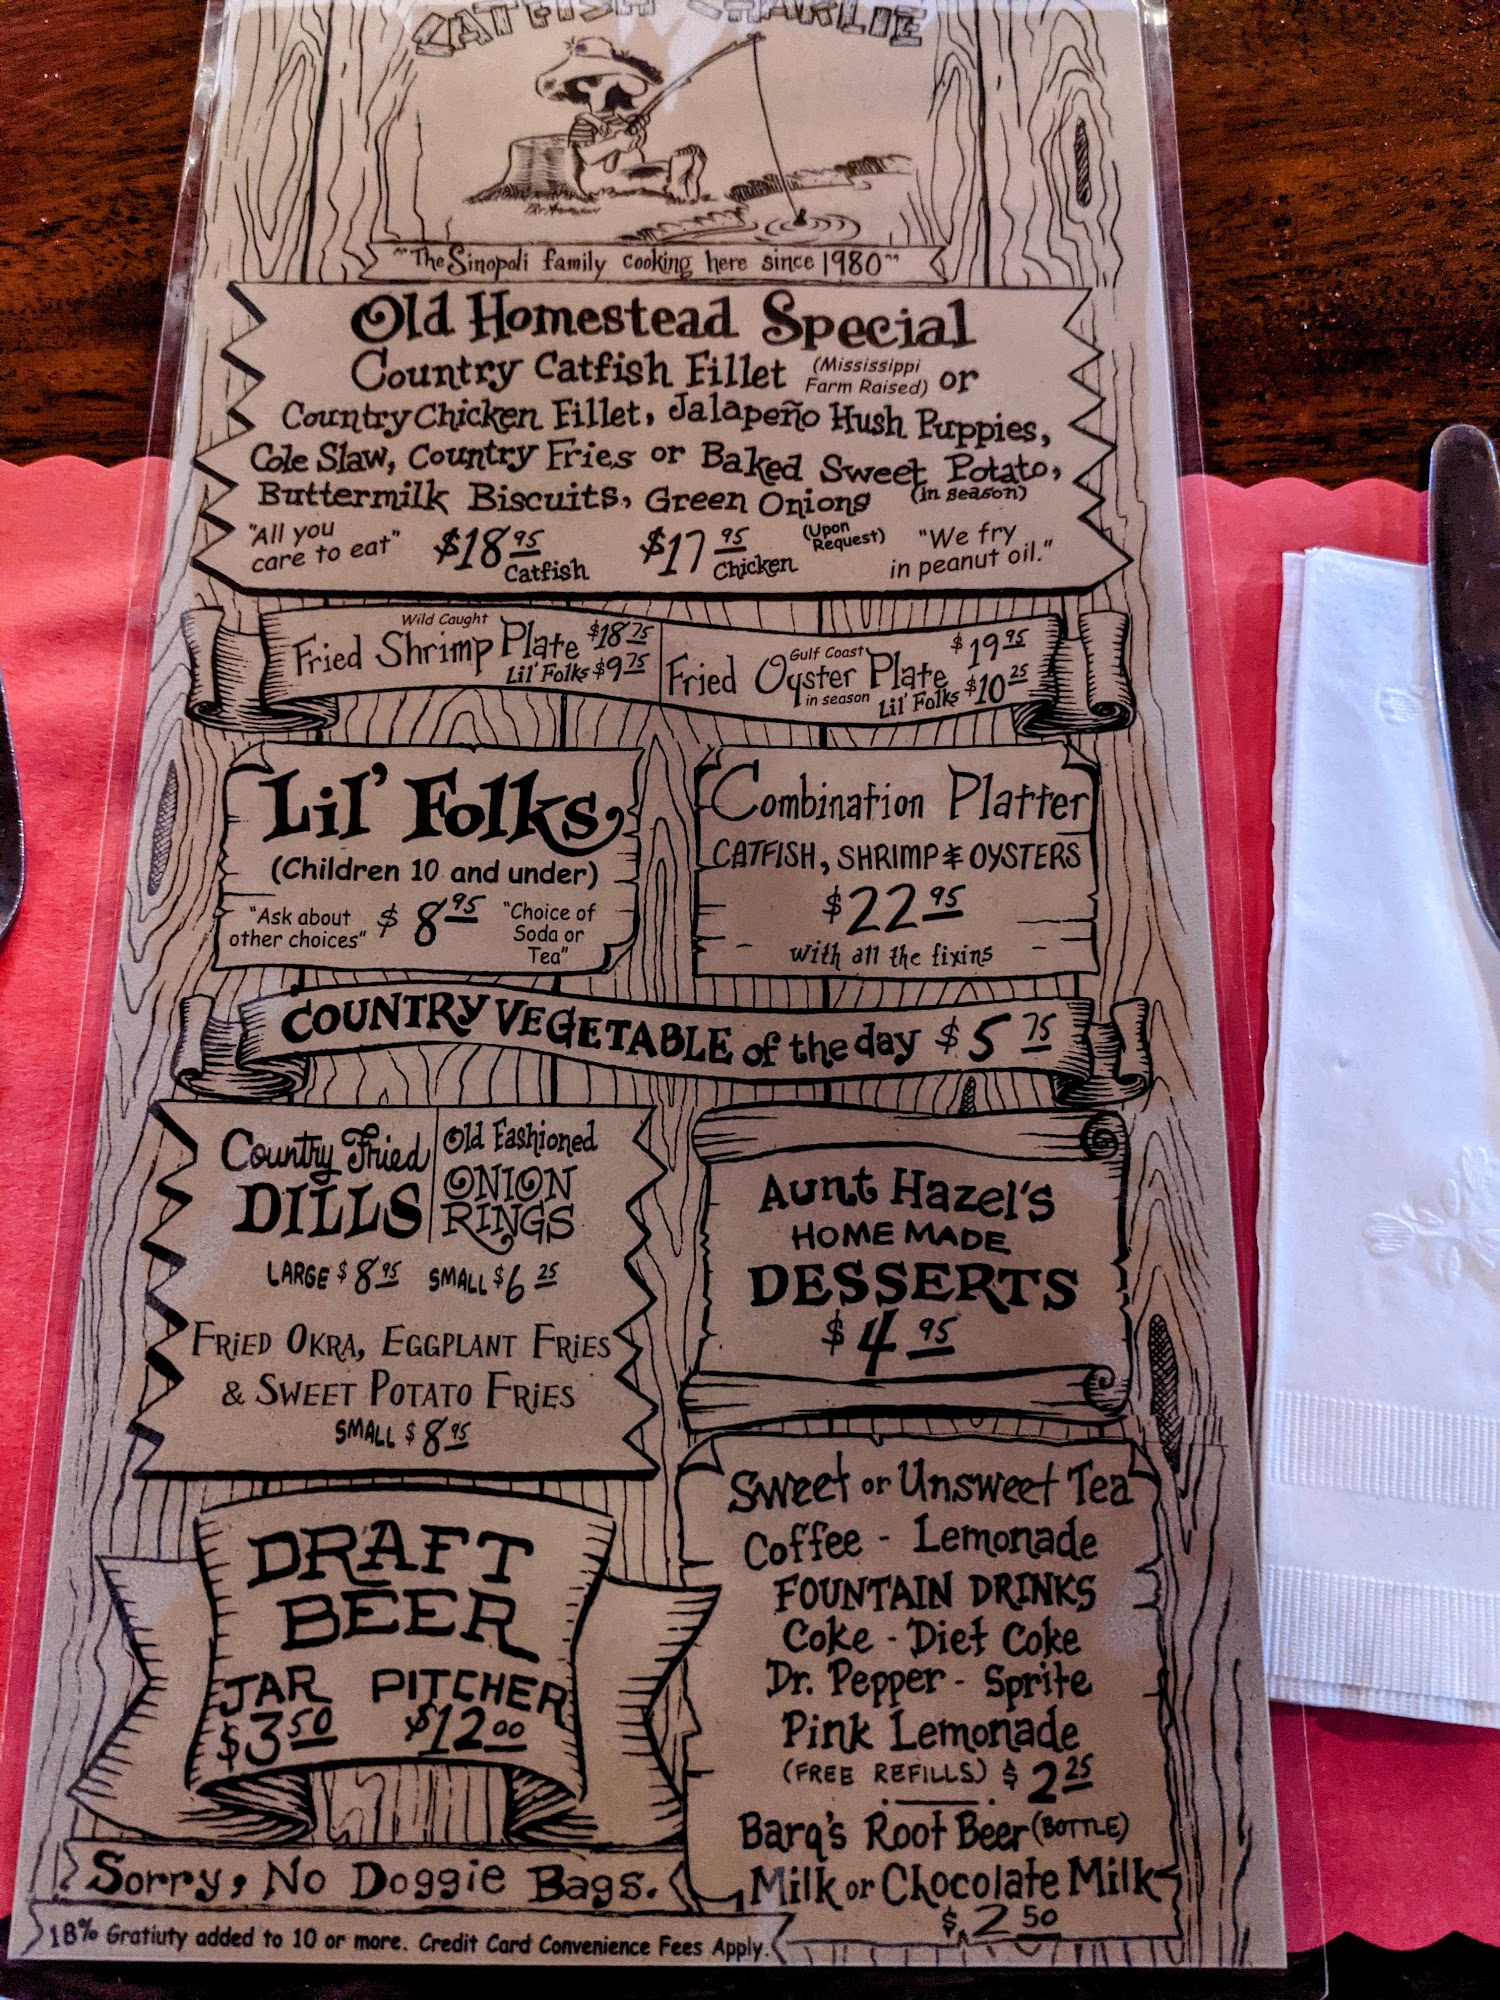 CATFISH CHARLIE
"The Sinopoli family cooking here since 1980"
Old Homestead Special
Country Catfish Fillet (Mississippi Farm Raised) or
Country Chicken Fillet, Jalapeño Hush Puppies,
Cole Slaw, Country Fries or Baked Sweet Potato,
Buttermilk Biscuits, Green Onions (in season)
"All you care to eat" $18.95 Catfish $17.95 Chicken (Upon Request) "We fry in peanut oil."
Wild Caught
Fried Shrimp Plate $18.75
Lil' Folks $9.75
Gulf Coast
Fried Oyster Plate $19.95
in season Lil' Folks $10.25
Lil' Folks
(Children 10 and under)
"Ask about other choices" $8.95 "Choice of Soda or Tea"
Combination Platter
CATFISH, SHRIMP & OYSTERS
$22.95
with all the fixins
COUNTRY VEGETABLE of the day $5.75
Country Fried
DILLS
Old Fashioned
ONION
RINGS
LARGE $8.95 SMALL $6.25
FRiED OKRA, EGGPLANT FRiES
& SWEET POTATO FRiES
SMALL $8.95
Aunt Hazel's
HOME MADE
DESSERTS
$4.95
DRAFT
BEER
JAR PITCHER
$3.50 $12.00
Sweet or Unsweet Tea
Coffee - Lemonade
FOUNTAIN DRINKS
Coke - Diet Coke
Dr. Pepper - Sprite
Pink Lemonade
(FREE REFILLS) $2.25
Barq's Root Beer (BOTTLE)
Milk or Chocolate Milk
$2.50
Sorry, No Doggie Bags.
18% Gratiuty added to 10 or more. Credit Card Convenience Fees Apply.